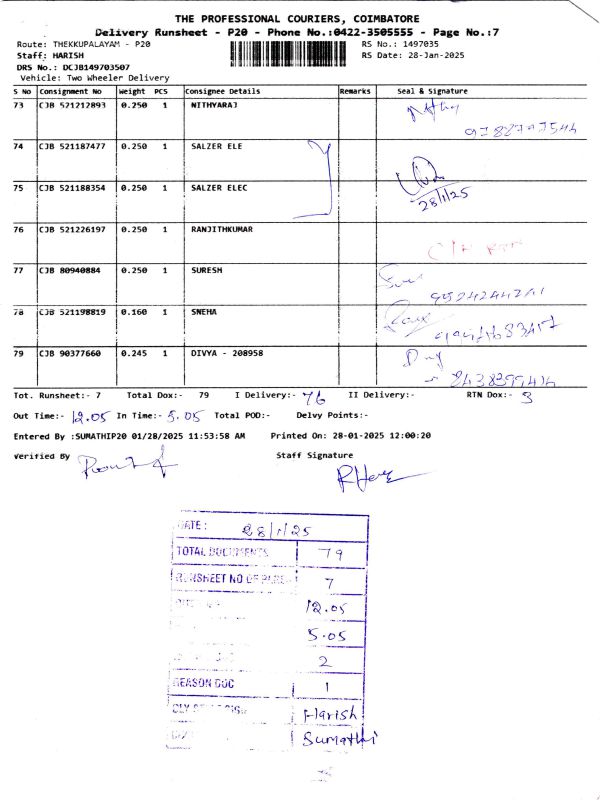 THE PROFESSIONAL COURIERS, COIMBATORE
Delivery Runsheet - P20 - Phone No.:0422-3505555 - Page No.:7
Route: THEKKUPALAYAM - P20 RS No.: 1497035
Staff: HARISH RS Date: 28-Jan-2025
DRS No.: DCJB149703507
Vehicle: Two Wheeler Delivery
S No Consignment No Weight PCS Consignee Details Remarks Seal & Signature
73 CJB 521212893 0.250 1 NITHYARAJ
74 CJB 521187477 0.250 1 SALZER ELE
75 CJB 521188354 0.250 1 SALZER ELEC
28/1/25
76 CJB 521226197 0.250 1 RANJITHKUMAR
77 CJB 80940884 0.250 1 SURESH
78 CJB 521198819 0.160 1 SNEHA
79 CJB 90377660 0.245 1 DIVYA - 208958
Tot. Runsheet:- 7 Total Dox:- 79 I Delivery:- 76 II Delivery:- RTN Dox:- 3
Out Time:- 12.05 In Time:- 5.05 Total POD:- Delvy Points:-
Entered By :SUMATHIP20 01/28/2025 11:53:58 AM Printed On: 28-01-2025 12:00:20
Verified By Staff Signature
DATE : 28/1/25
TOTAL DOCUMENTS 79
RUNSHEET NO OF 7
12.05
5.05
2
REASON DOC 1
Harish
Sumathi